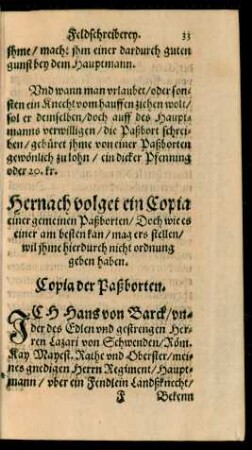 Feldschreiberey. 33
ihme / macht ihm einer dardurch guten
gunst bey dem Hauptmann.
Vnd wann man vrlaubet / oder son-
sten ein Knecht vom hauffen ziehen wolt /
sol er demselben / doch auff des Haupt-
manns verwilligen / die Paßbort schrei-
ben / gebüret ihme von einer Paßborten
gewönlich zu lohn / ein dicker Pfenning
oder 20. kr.
Hernach volget ein Copia
einer gemeinen Paßborten / Doch wie es
einer am besten kan / mag ers stellen /
wil ihme hierdurch nicht ordnung
geben haben.
Copia der Paßborten.
ICH Hans von Barck / vn-
der des Edlen vnd gestrengen Her-
ren Lazari von Schwenden / Röm.
Kay Mayest. Rathe vnd Oberster / mei-
nes gnedigen Herrn Regiment / Haupt-
mann / vber ein Fendlein Landßknecht /
F Bekenn